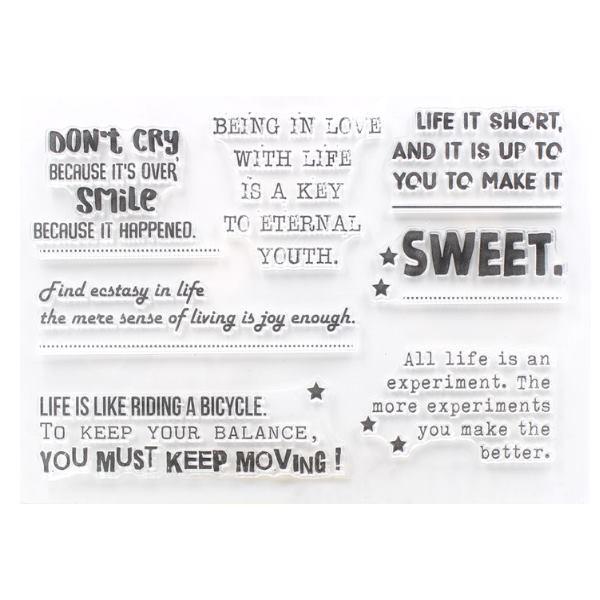 DON'T CRY
BECAUSE IT'S OVER,
SMILE
BECAUSE IT HAPPENED.
BEING IN LOVE
WITH LIFE
IS A KEY
TO ETERNAL
YOUTH.
LIFE IT SHORT,
AND IT IS UP TO
YOU TO MAKE IT
SWEET.
Find ecstasy in life
the mere sense of living is joy enough.
LIFE IS LIKE RIDING A BICYCLE.
TO KEEP YOUR BALANCE,
YOU MUST KEEP MOVING !
All life is an
experiment. The
more experiments
you make the
better.